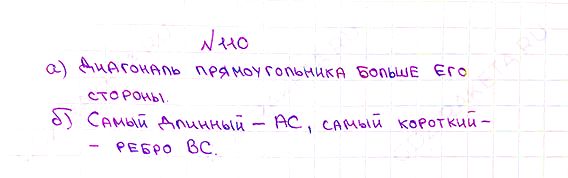 №110
а) Диагональ прямоугольника больше его
стороны.
б) Самый длинный – АС, самый короткий –
– ребро ВС.